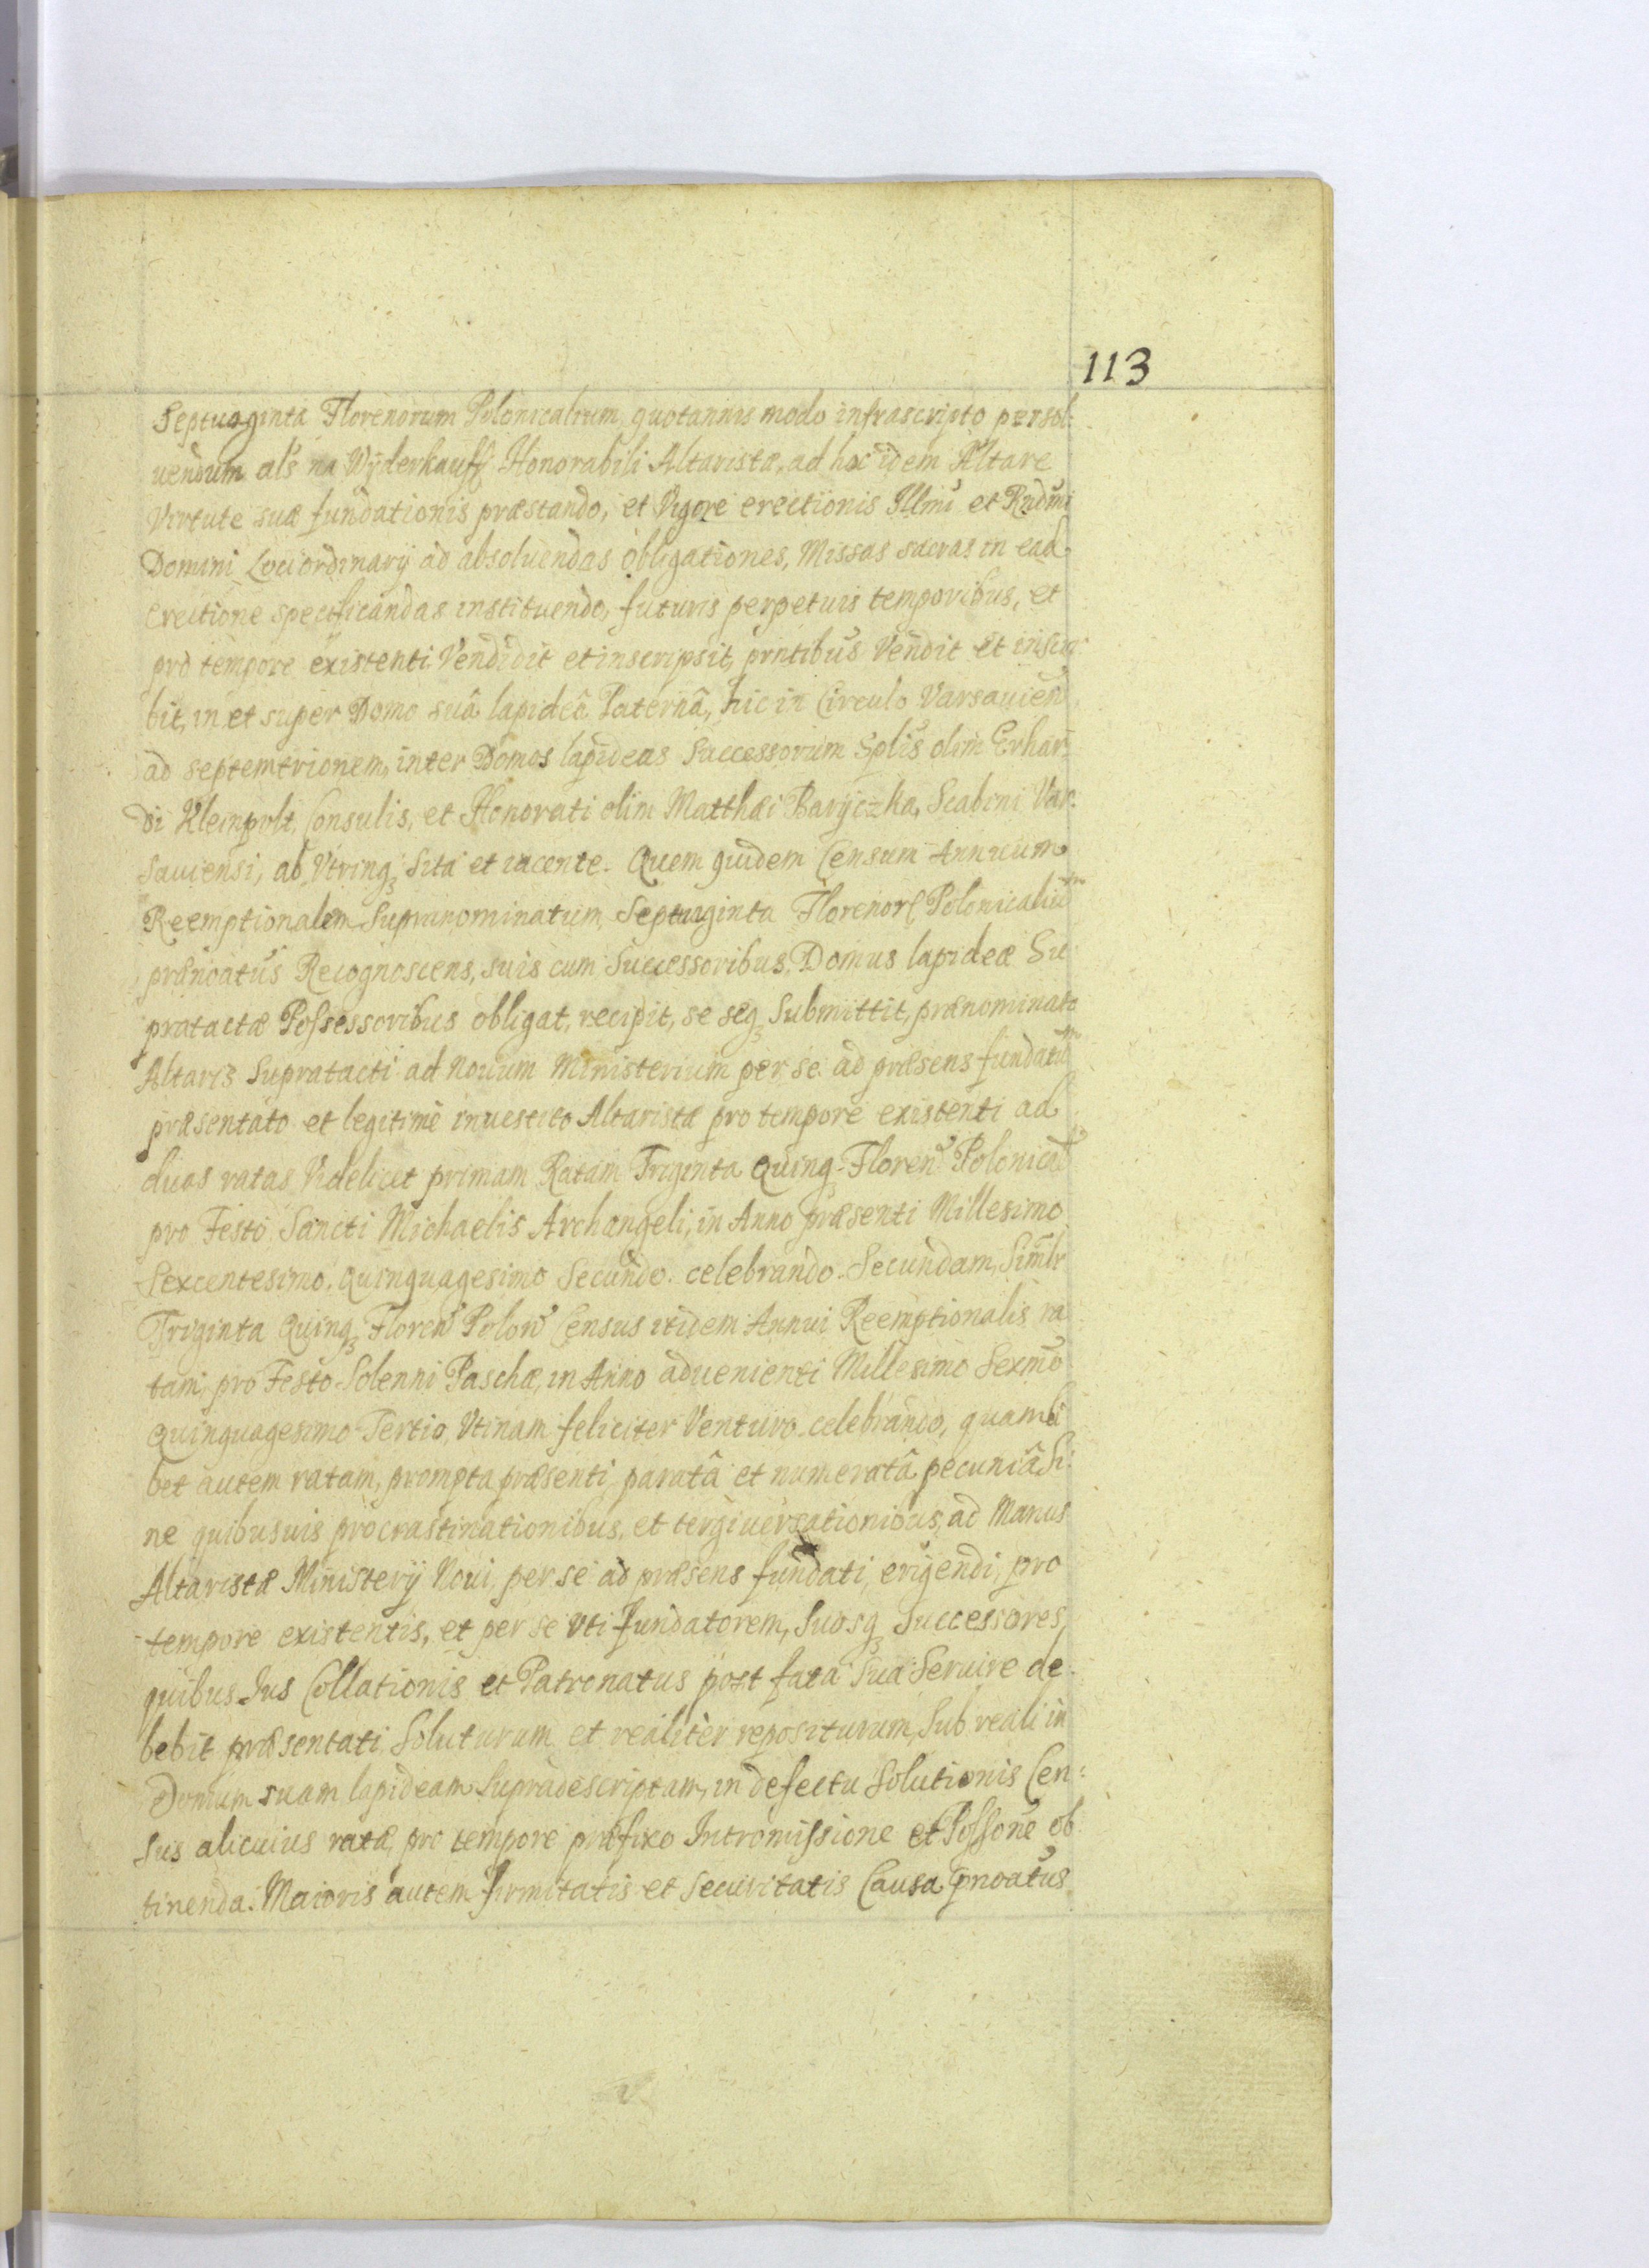 113
Septuaginta Florenorum Polonicalium, quotannis modo infrascripto persol:
uendum als na Wÿderkauff Honorabili Altaristæ, ad hoc idem Altare
Virtute suæ fundationis præstando, et Vigore erectionis Illmi et Rndmi
Domini Loci ordinarÿ ad absoluendas obligationes, Missas sacras in ead
erectione specificandas instituendo, futuris perpetuis temporibus, et
pro tempore existenti Vendidit et inscripsit, prntibus Vendit et inscri
bit, in et super Domo suâ lapideâ Paternâ, hic in Circulo Varsauien
ad septemtrionem, inter Domos lapideas Successorum Splis olim Erhar
di Kleinpolt, Consulis, et Honorati olim Matthæi Barÿczka, Scabini Var:
sauiensi, ab Vtrinq; sita et iacente. Quem quidem Censum Annuum
Reemptionalem Supranominatum, Septuaginta Florenor Polonicaliu
prænoatus Recognoscens, suis cum Successoribus, Domus lapideæ Su
pratactæ Possessoribus obligat, recipit, se seq; Submittit, prænominato
Altaris Supratacti ad Nouum Ministerium per se ad præsens fundatu
præsentato et legitimè inuestito Altaristæ pro tempore existenti ad
duas ratas Videlicet primam Ratam Triginta Quinq; Floren Polonical
pro Festo Sancti Michaelis Archangeli, in Anno præsenti Millesimo
Sexcentesimo, Quinquagesimo Secundo celebrando. Secundam, Simlr
Triginta Quinq; Floren Polon Census itidem Annui Reemptionalis ra
tam, pro Festo Solenni Paschæ, in Anno aduenienti Millesimo Sexmo
Quinquagesimo Tertio, Vtinam feliciter Venturo celebrando, quamli
bet autem ratam, prompta præsenti, paratâ et numeratâ pecuniâ Si:
ne quibusuis procrastinationibus, et tergiuersationibus, ad Manus
Altaristæ Ministerÿ Noui, per se ad præsens fundati, erigendi, pro
tempore existentis, et per se vti fundatorem, Suosq; Successores,
quibus Ius Collationis et Patronatus post fata Sua Seruire de
bebit præsentati, Soluturum et realiter repositurum, Sub reali in
Domum suam lapideam Supradescriptam, in defectu Solutionis Cen:
sus alicuius ratæ, pro tempore præfixo Intromissione et Possone ob
tinenda. Maioris autem firmitatis et Securitatis Causa pnoatus